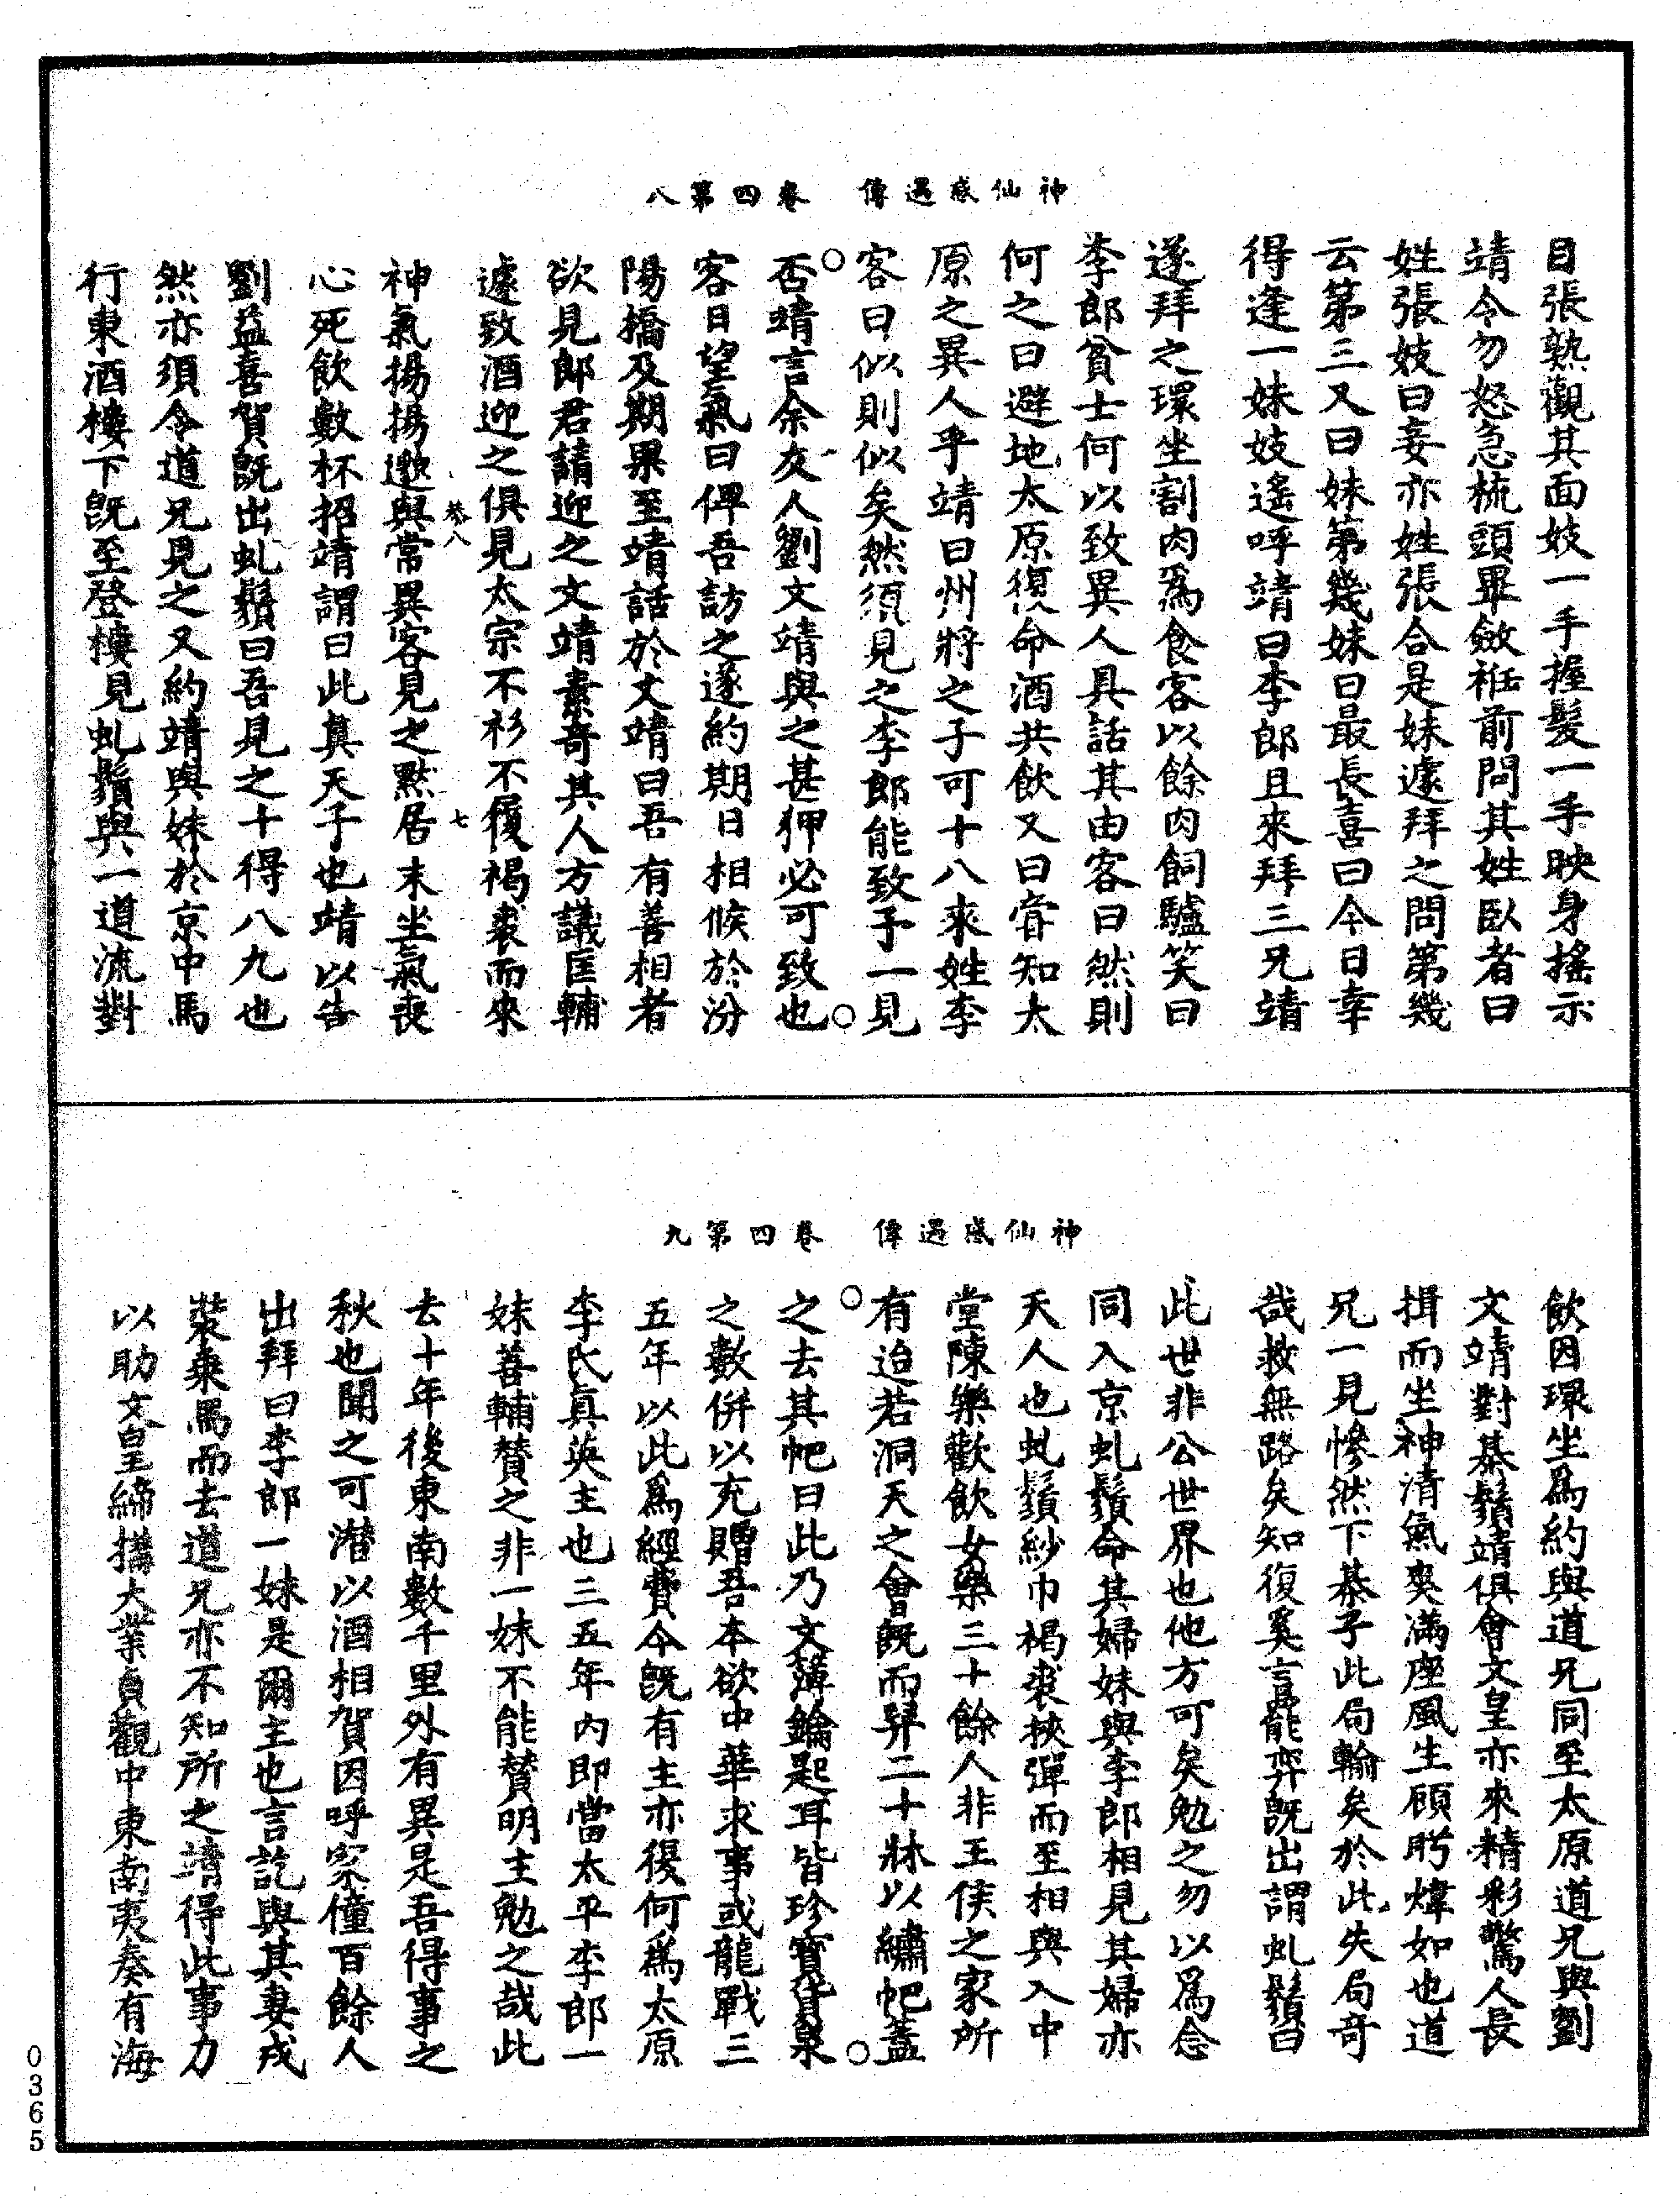 神仙感遇傳 卷四第八
目張熟觀其面妓一手握髮一手映身搖示
靖令勿怒急梳頭畢斂袵前問其姓臥者曰
姓張妓曰妾亦姓張合是妹遽拜之問第幾
云第三又曰妹第幾妹曰最長喜曰今日幸
得逢一妹妓遙呼靖曰李郎且來拜三兄靖
遂拜之環坐割肉爲食客以餘肉飼驢笑曰
李郎貧士何以致異人具話其由客曰然則
何之曰避地太原復命酒共飲又曰嘗知太
原之異人乎靖曰州將之子可十八來姓李
客曰似則似矣然須見之李郎能致予一見
否靖言余友人劉文靖與之甚狎必可致也
客曰望氣曰俾吾訪之遂約期日相候於汾
陽橋及期果至靖話於文靖曰吾有善相者
欲見郎君請迎之文靖素奇其人方議匡輔
遽致酒迎之俱見太宗不衫不履褐裘而來
恭八 七
神氣揚揚邈與常異客見之黙居末坐氣喪
心死飲數杯招靖謂曰此真天子也靖以告
劉益喜賀旣出虬鬚曰吾見之十得八九也
然亦須令道兄見之又約靖與妹於京中馬
行東酒樓下旣至登樓見虬鬚與一道流對
神仙感遇傳 卷四第九
飲因環坐爲約與道兄同至太原道兄與劉
文靖對棊鬚靖俱會文皇亦來精彩驚人長
揖而坐神清氣爽滿座風生顧盻煒如也道
兄一見慘然下棊子此局輸矣於此失局奇
哉救無路矣知復奚言罷弈旣出謂虬鬚曰
此世非公世界也他方可矣勉之勿以爲念
同入京虬鬚命其婦妹與李郎相見其婦亦
天人也虬鬚紗巾褐裘挾彈而至相與入中
堂陳樂歡飲女樂三十餘人非王侯之家所
有迨若洞天之會旣而舁二十牀以繡帊蓋
之去其帊曰此乃文簿鑰匙耳皆珍寶貨泉
之數併以充贈吾本欲中華求事或龍戰三
五年以此爲經費今旣有主亦復何爲太原
李氏真英主也三五年内即當太平李郎一
妹善輔賛之非一妹不能賛明主勉之哉此
去十年後東南數千里外有異是吾得事之
秋也聞之可潜以酒相賀因呼家僮百餘人
出拜曰李郎一妹是爾主也言訖與其妻戎
裝乘馬而去道兄亦不知所之靖得此事力
以助文皇締搆大業貞觀中東南夷奏有海
0365